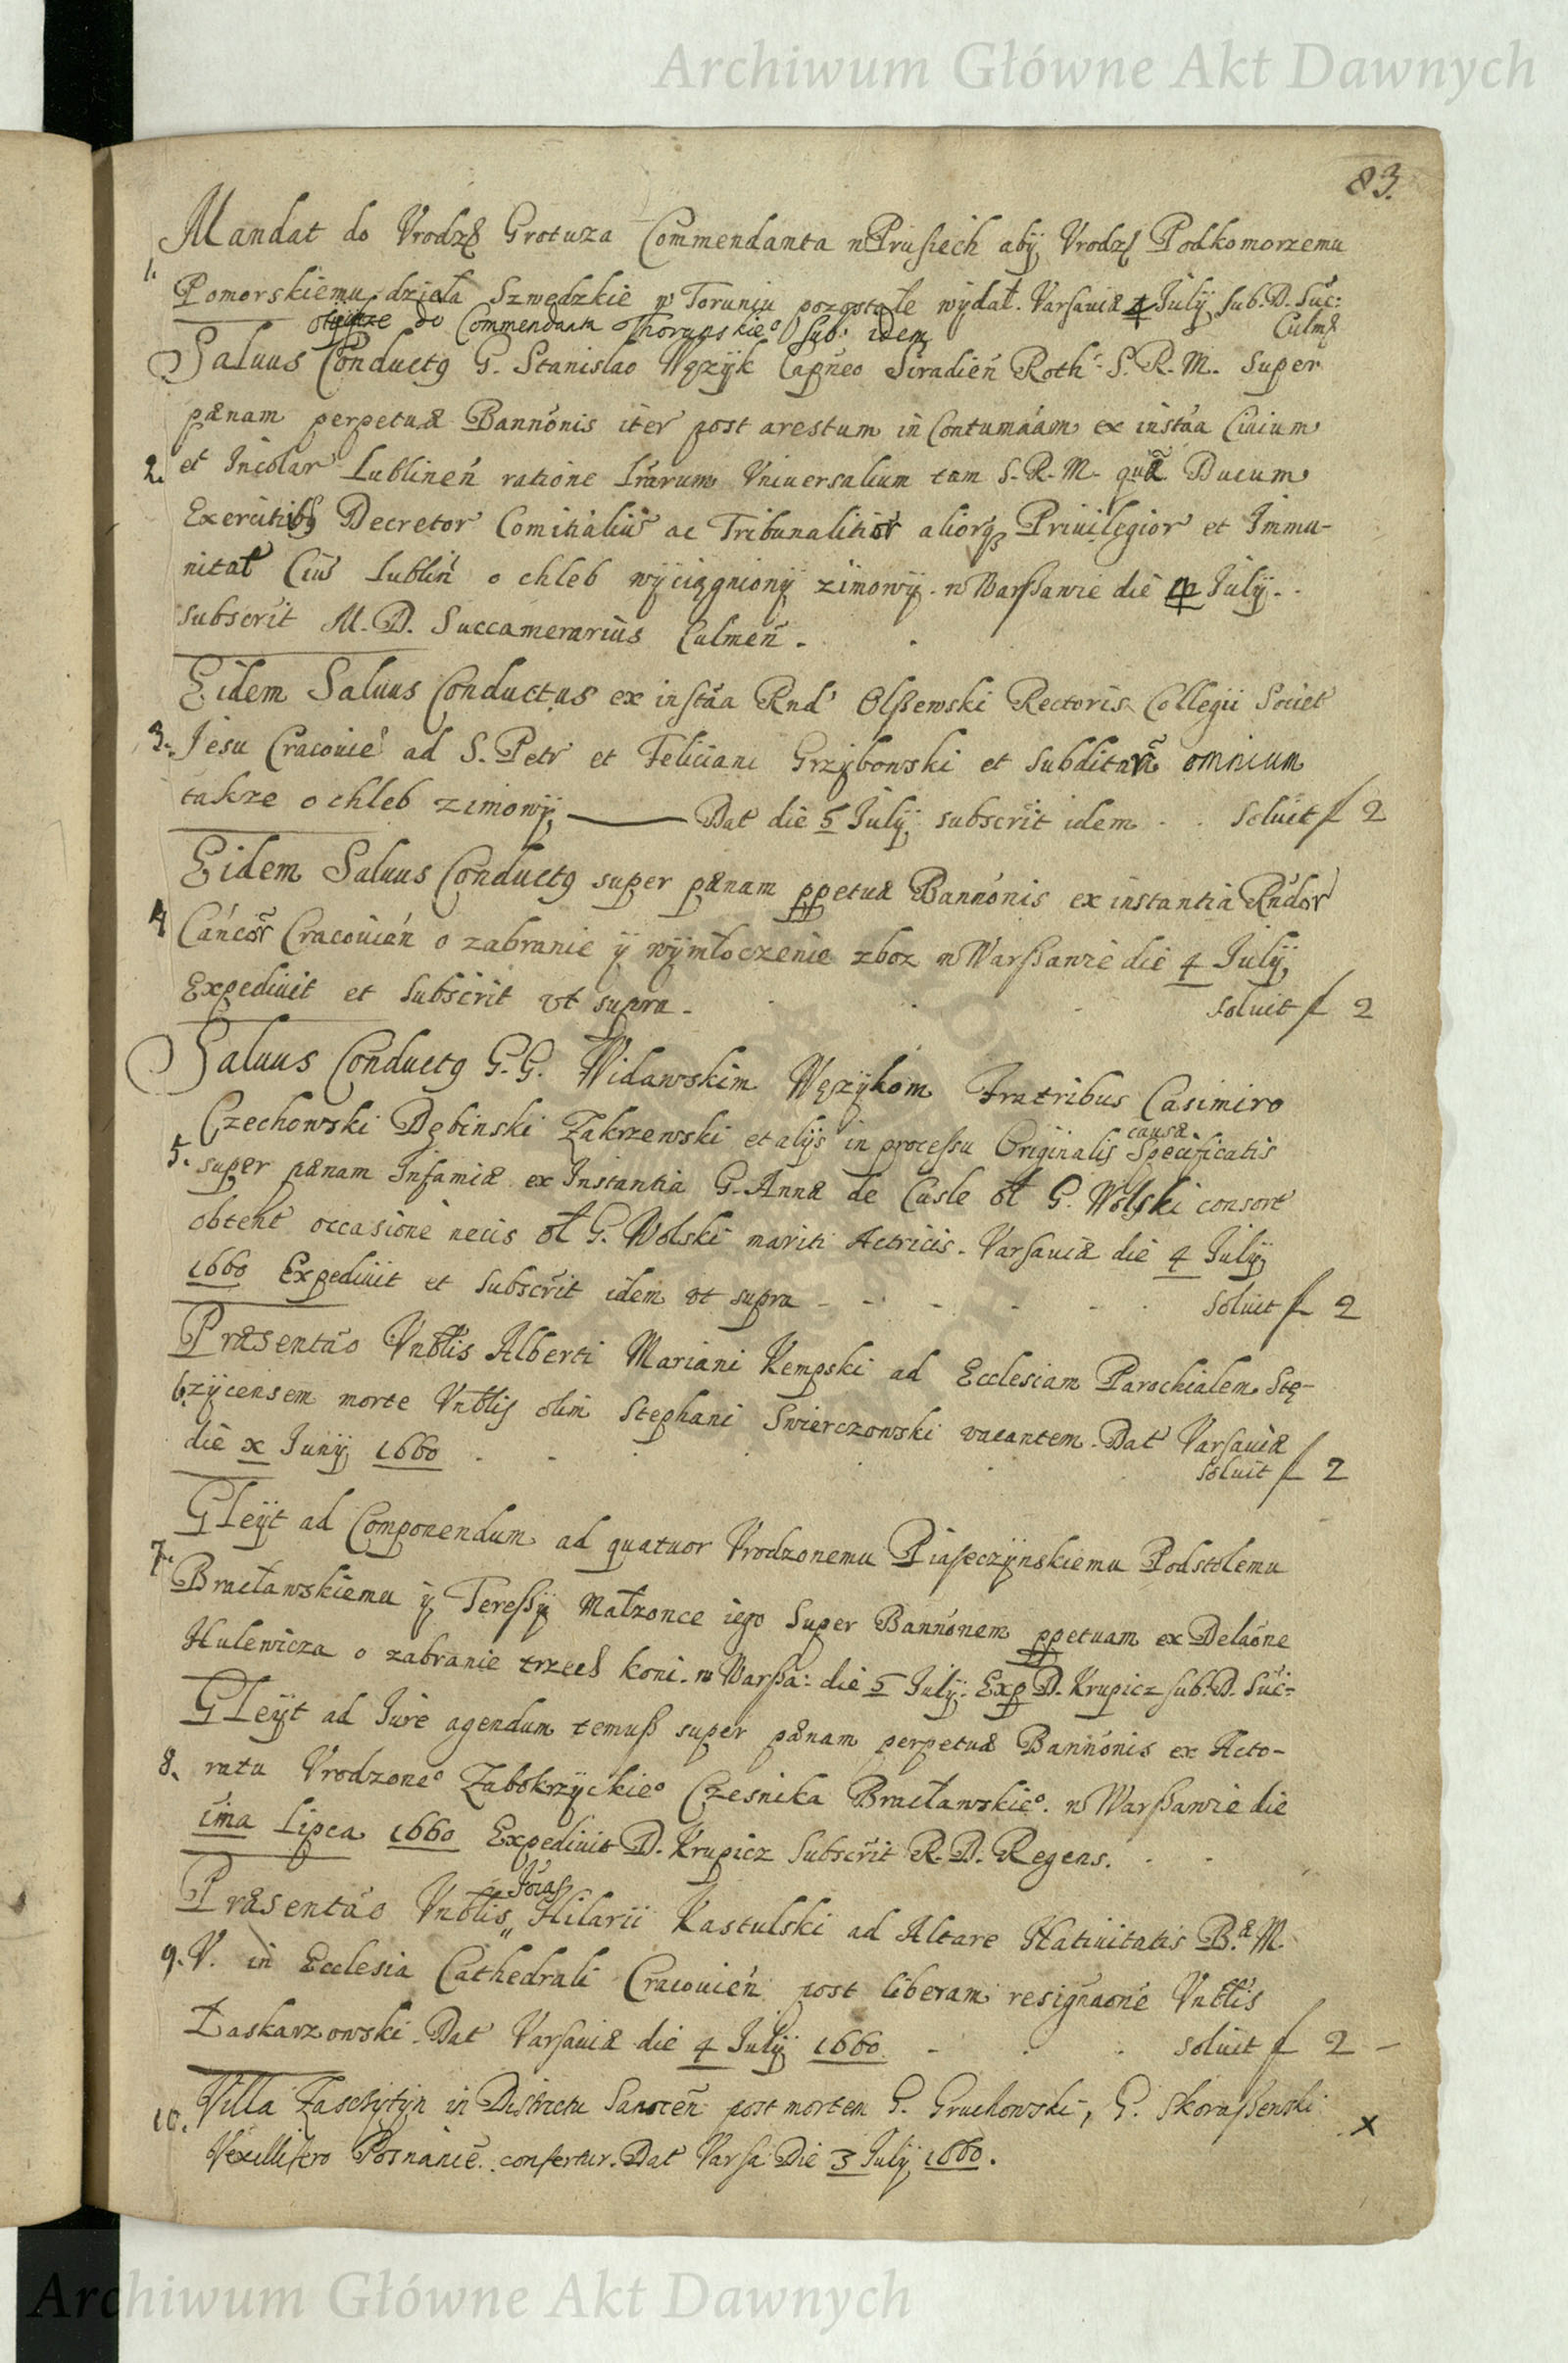 Archiwum Główne Akt Dawnych
83.
Mandat do Vrodz Grotuza Commendanta w Prusiech aby Vrodz Podkomorzemu
1. Pomorskiemu działa Szwedzkie w Toruniu pozostałe wydał. Varsaviæ 4 July sub. D. Suc:
Culm
do Commendanta Thorunskie° sub. idem
Saluus Conductq G. Stanislao Wężyk Capneo Siradień Roth: S. R. M. super
pænam perpetuæ Bannónis iter post arestum in Contumáám ex instáa Ciuium
2. et Incolar Lublineń ratione Lrárum Vniuersalium tam S. R. M. quã Ducum
Exercitibq Decretor Comitialiũ ac Tribunalitior aliorq Priuilegior et Immu-
nitat Ciũ Lubliń o chleb wyciągniony zimowy. w Warszawie die 4 July.
subscrit M. D. Succamerarius Culmeń.
Eidem Saluus Conductus ex instáa Rnd Olszewski Rectoris Collegii Societ
3. Iesu Cracovie ad S. Petr et Feliciani Grzybowski et subditorũ omnium
także o chleb zimowy, — Dat die 5 July subscrit idem. soluit f 2
Eidem Saluus Conductq super pænam ppetuæ Bannónis ex instantia Rndor
4 Cáncor Cracouień o zabranie y wymłoczenie zboz w Warszawie die 4 July,
Expediuit et subscrit vt supra. soluit f 2
Saluus Conductq G. G. Widawskim Wężykom Fratribus Casimiro
Czechowski Dębinski Zakrzewski et alys in processu Originalis causæ Specificatis
5. super pænam Infamiæ ex Instantia G. Annæ de Cusle ol G. Wolski consort
obtent occasione necis ol G. Wolski mariti Actricis. Varsauiæ die 4 July
1660 Expediuit et subscrit idem vt supra - - - soluit f 2
Præsentáo Vnblis Alberti Mariani Kempski ad Ecclesiam Parochialem Stę-
6. zycensem morte Vnblis olim Stephani Swierczowski vacantem. Dat Varsauiæ
die x Juny 1660 soluit f 2
Gleyt ad Componendum ad quatuor Vrodzonemu Piaseczynskiemu Podstolemu
7. Bracławskiemu y Teressy Małzonce iego super Bannónem ppetuam ex Delaóne
Hulewicza o zabranie trzech koni. w Warsza: die 5 July. Exp D. Krupicz sub. D. Suc:
Gleyt ad Iure agendum temuß super pænam perpetuæ Bannónis ex Acto-
8. ratu Vrodzone° Zabokrzyckie° Czesnika Bracławskie°. w Warszawie die
ima Lipca 1660 Expediuit D. Krupicz Subscrit R. D. Regens.
Præsentáo Vnblis Hilarii Kastulski ad Altare Natiuitatis B.æ M.
9. V. in Ecclesia Cathedrali Cracouień post liberam resignaóne Vnblis
Łaskarzowski. Dat Varsauiæ die 4 July 1660. - soluit f 2 -
10. Villa Zaschytyn in Districtu Sanoceń post mortem G. Gruchowski, G. Skoraszewski x
Vexillifero Posnanie. confertur. Dat Varsa Die 3 July 1660.
Archiwum Główne Akt Dawnych